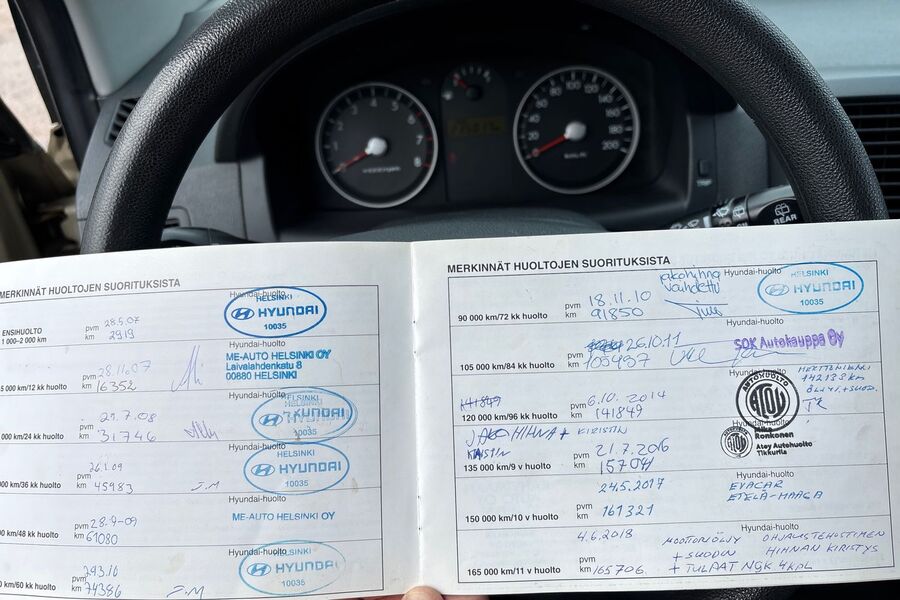 1 2 3 4 5 6 7 8
0 20 40 60 80 100 120 140 160 180 200
TRIP
REAR
MERKINNÄT HUOLTOJEN SUORITUKSISTA
Hyundai-huolto
ENSIHUOLTO
1 000–2 000 km
pvm 28.5.07
km 2919
HELSINKI
HYUNDAI
10035
Hyundai-huolto
5 000 km/12 kk huolto
pvm 28.11.07
km 16352
ME-AUTO HELSINKI OY
Laivalahdenkatu 8
00880 HELSINKI
Hyundai-huolto
000 km/24 kk huolto
pvm 21.7.08
km 31746
HYUNDAI
10035
Hyundai-huolto
000 km/36 kk huolto
pvm 26.1.09
km 45983
J.M
HYUNDAI
10035
Hyundai-huolto
000 km/48 kk huolto
pvm 28.9-09
km 61080
ME-AUTO HELSINKI OY
Hyundai-huolto
0 km/60 kk huolto
pvm 29.3.10
km 74386
J.M
HYUNDAI
10035
MERKINNÄT HUOLTOJEN SUORITUKSISTA
jakohihna
vaihdettu
Hyundai-huolto
90 000 km/72 kk huolto
pvm 18.11.10
km 91850
HELSINKI
HYUNDAI
10035
Hyundai-huolto
105 000 km/84 kk huolto
pvm 26.10.11
km 105497
SOK Autokauppa Oy
Hyundai-huolto
141849
120 000 km/96 kk huolto
pvm 6.10.2014
km 141849
AUTOHUOLTO
ATOY
HERTTONIEMI
142133 km
ÖLJYT+SUOD.
Hyundai-huolto
JAKOHIHNA + KIRISTIN
135 000 km/9 v huolto
pvm 21.7.2016
km 15704
Mika
Ronkonen
Atoy Autohuolto
Tikkurila
Hyundai-huolto
150 000 km/10 v huolto
pvm 24.5.2017
km 161321
EVACAR
ETELÄ-HAAGA
Hyundai-huolto
165 000 km/11 v huolto
pvm 4.6.2018
km 165706
MOOTTORIÖLJY OHJAUSTEHOSTIMEN
+ SUODIN HIHNAN KIRISTYS
+ TULPAT NGK 4KPL